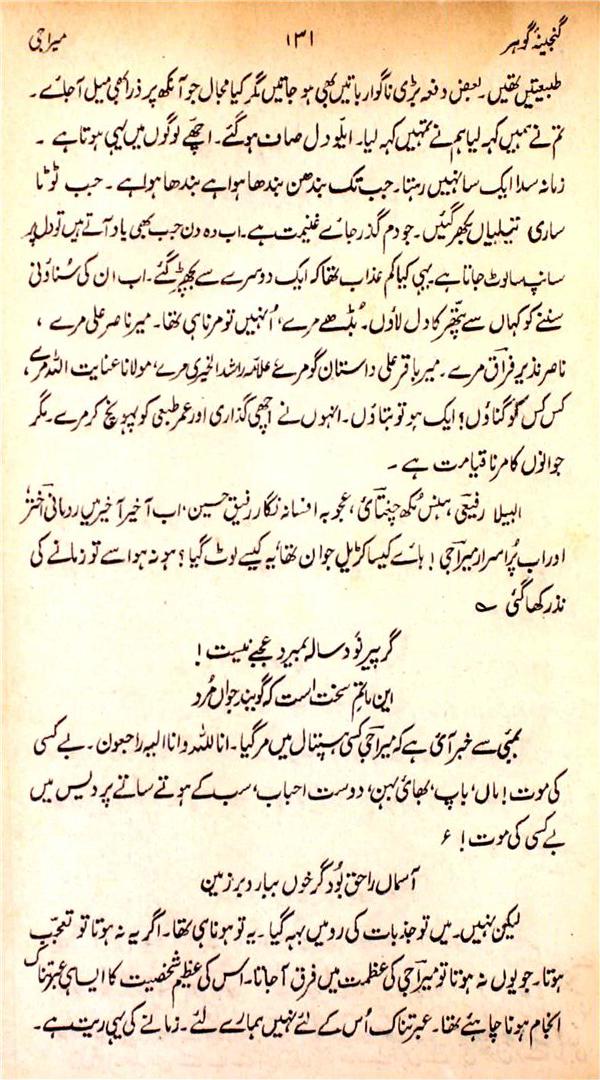 گنجینۂ گوہر ۱۳۱ میراجی
طبیعتیں تھیں۔ بعض دفعہ بڑی ناگوار باتیں بھی ہو جاتیں مگر کیا مجال جو آنکھ پر ذرا بھی میل آجائے۔
تم نے ہمیں کہہ لیا ہم نے تمہیں کہہ لیا۔ ایلو دل صاف ہو گئے۔ اچھے لوگوں میں یہی ہوتا ہے۔
زمانہ سدا ایک سا نہیں رہتا۔ جب تک بندھن بندھا ہوا ہے بندھا ہوا ہے۔ جب ٹوٹا
ساری تیلیاں بکھر گئیں۔ جو دم گذر جائے غنیمت ہے۔ اب وہ دن جب بھی یاد آتے ہیں تو دل پر
سانپ سا لوٹ جاتا ہے یہی کیا کم عذاب تھا کہ ایک دوسرے سے بچھڑ گئے۔ اب ان کی سُناؤنی
سننے کو کہاں سے پتّھر کا دل لاؤں۔ بُڈھے مرے، اُنہیں تو مرنا ہی تھا۔ میر ناصر علی مرے،
ناصر نذیر فراق مرے۔ میر باقر علی داستان گو مرے علامہ راشد الخیری مرے، مولانا عنایت اللہ مرے،
کس کس کو گناؤں؟ ایک ہو تو بتاؤں۔ انہوں نے اچھی گذاری اور عمر طبعی کو پہونچ کر مرے۔ مگر
جوانوں کا مرنا قیامت ہے۔
البیلا رفیعی، ہنس مُکھ چغتائی، عجوبہ افسانہ نگار رفیق حسین، اب آخیر آخیر میں رومانی اختر
اور اب پُراسرار میراجی! ہائے کیسا کڑیل جوان تھا یہ کیسے لوٹ گیا؟ ہو نہ ہو اسے تو زمانے کی
نذر کھا گئی ؎
گر پیر نود سالہ بمیرد عجبے نیست!
این ماتم سخت است کہ گویند جواں مُرد
بمبئی سے خبر آئی ہے کہ میراجی کسی ہسپتال میں مر گیا۔ انا للہ وانا الیہ راجعون۔ بے کسی
کی موت! ماں، باپ، بھائی بہن، دوست احباب، سب کے ہوتے ساتے پردیس میں
بے کسی کی موت! ؏
آسماں را حق بُود گر خوں ببارد بر زمین
لیکن نہیں۔ میں تو جذبات کی رو میں بہہ گیا۔ یہ تو ہونا ہی تھا۔ اگر یہ نہ ہوتا تو تعجّب
ہوتا۔ جو یوں نہ ہوتا تو میراجی کی عظمت میں فرق آجاتا۔ اس کی عظیم شخصیت کا ایسا ہی عبرتناک
انجام ہونا چاہئے تھا۔ عبرتناک اُس کے لئے نہیں ہمارے لئے۔ زمانے کی یہی ریت ہے۔